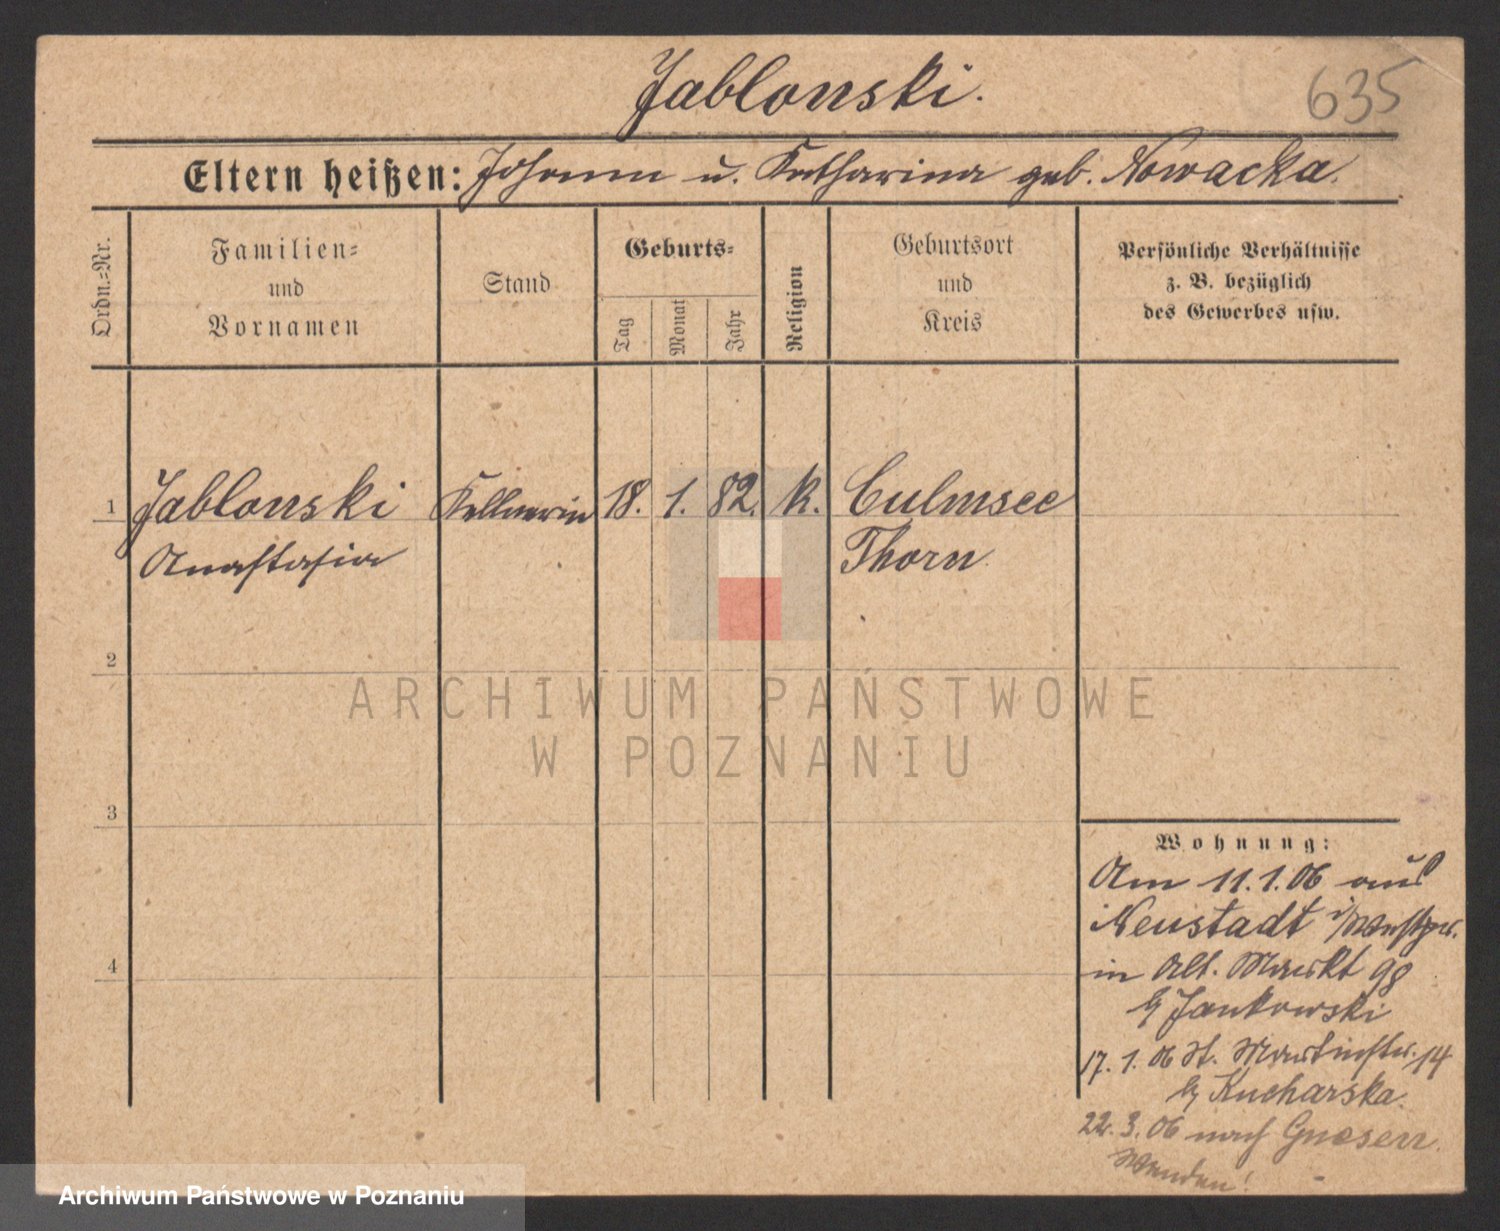 Jablonski.
635
Eltern heißen: Johann u. Katharina geb. Nowacka.
Ordn.=Nr.
Familien=
und
Vornamen
Stand
Geburts=
Tag
Monat
Jahr
Religion
Geburtsort
und
Kreis
Persönliche Verhältnisse
z. B. bezüglich
des Gewerbes usw.
1 Jablonski Kellnerin 18. 1. 82. k. Culmsee
Anastasia Thorn
2
ARCHIWUM PAŃSTWOWE
W POZNANIU
3
4
Wohnung:
Am 11.1.06 aus
Neustadt i/Westpr.
in Alt. Markt 98
b/ Jankowski
17.1.06 St. Martinstr. 14
b/ Kucharska.
22.3.06 nach Gnesen
Wenden!
Archiwum Państwowe w Poznaniu